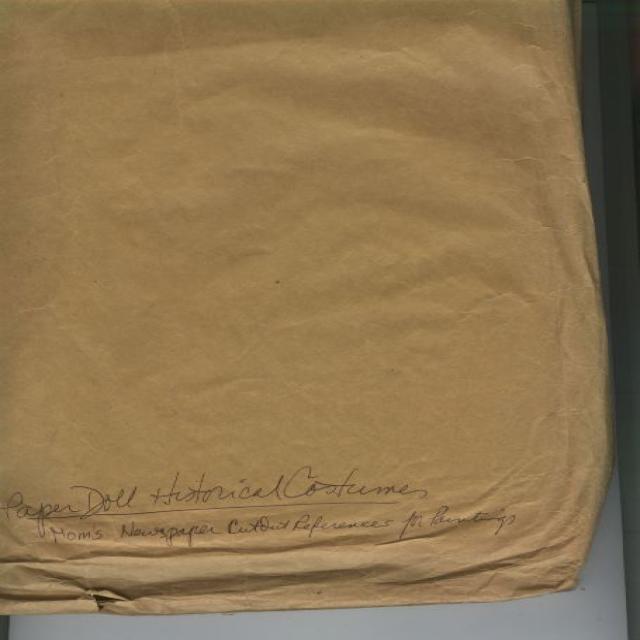 Paper Doll Historical Costumes
Mom's Newspaper CutOut References for Paintings